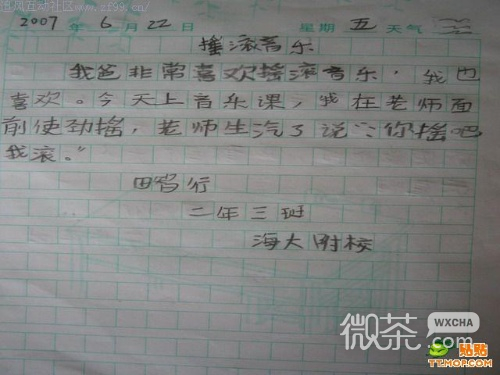 2007年6月22日 星期五 天气
摇滚音乐
我爸非常喜欢摇滚音乐，我也
喜欢。今天上音乐课，我在老师面
前使劲摇，老师生汽了说：“你摇吧
我滚。”
二年三班
海大附校
微茶
WXCHA
.COM
TT.MOP.COM